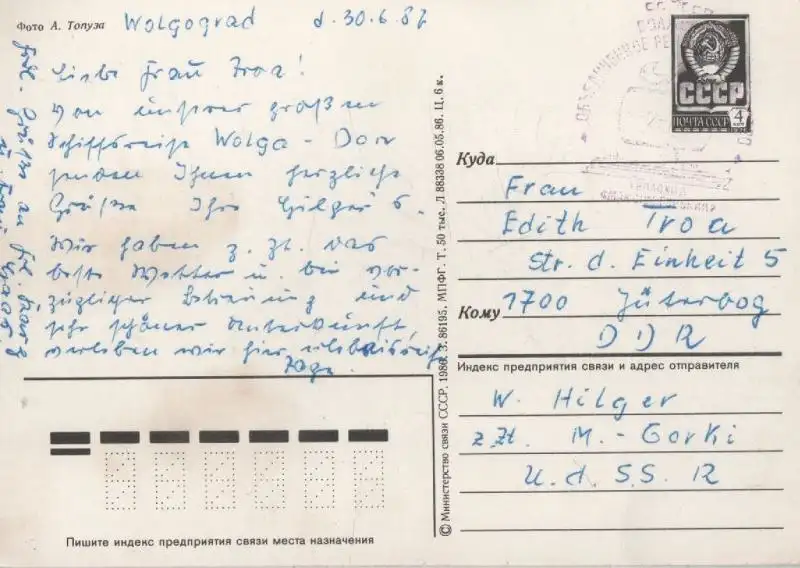 Фото А. Топуза
Wolgograd d. 30.6.87
Liebe Frau Troa!
Von unserer großen
Schiffsreise Wolga - Don
senden Ihnen herzliche
Grüße Ihre Hilger's.
Wir haben z. Zt. das
beste Wetter u. bei vor-
züglicher Betreuung und
sehr schöner Unterkunft,
verleben wir hier erlebnisreiche
Tage.
Grüße an
Пишите индекс предприятия связи места назначения
© Министерство связи СССР. 1986. З. 86195. МПФГ. Т. 50 тыс. Л 88338 06.05.86. Ц. 6 к.
СССР
ПОЧТА СССР 4
ТЕПЛОХОД
Куда
Frau
Edith Troa
Str. d. Einheit 5
Кому 1700 Jüterbog
DDR
Индекс предприятия связи и адрес отправителя
W. Hilger
z. Zt. M. - Gorki
U.d.S.S.R